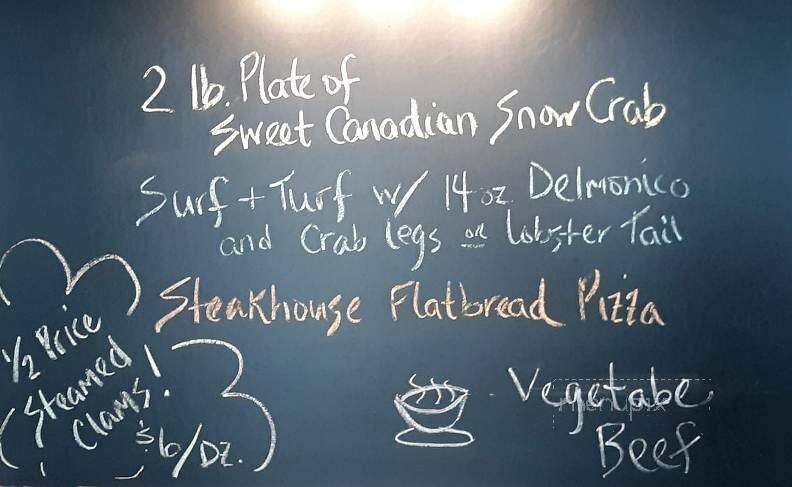 2 lb. Plate of
Sweet Canadian Snow Crab
Surf + Turf w/ 14 oz. Delmonico
and Crab legs or Lobster Tail
Steakhouse Flatbread Pizza
1/2 Price
Steamed
Clams!
$6/Dz.
Vegetabe
menupix
Beef